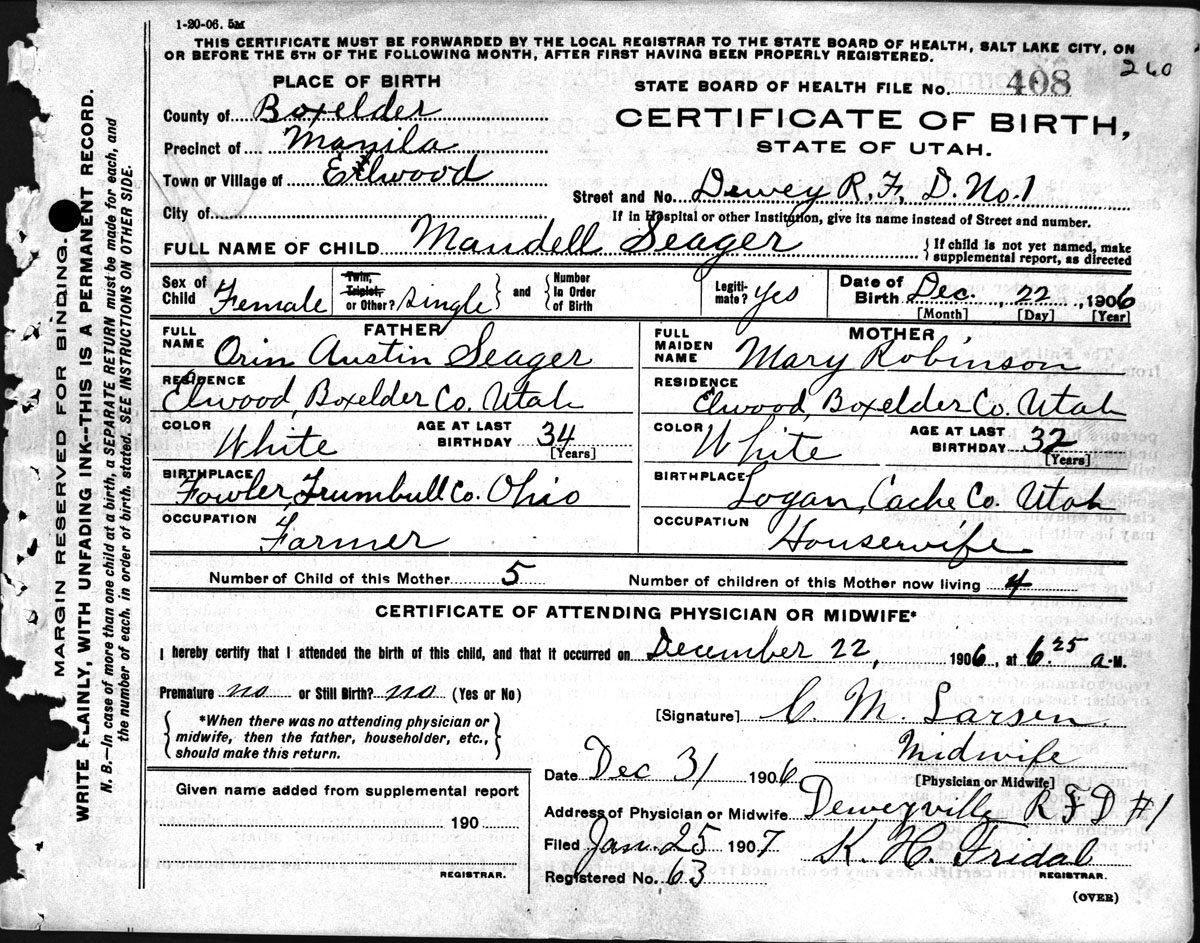 1-20-06. 5M
THIS CERTIFICATE MUST BE FORWARDED BY THE LOCAL REGISTRAR TO THE STATE BOARD OF HEALTH, SALT LAKE CITY, ON
OR BEFORE THE 5TH OF THE FOLLOWING MONTH, AFTER FIRST HAVING BEEN PROPERLY REGISTERED.
260
PLACE OF BIRTH
STATE BOARD OF HEALTH FILE No. 408
County of Boxelder
CERTIFICATE OF BIRTH,
Precinct of Manila
STATE OF UTAH.
Town or Village of Elwood
Street and No. Dewey R. F. D. No. 1
City of
If in Hospital or other Institution, give its name instead of Street and number.
FULL NAME OF CHILD Mandell Seager
{If child is not yet named, make
supplemental report, as directed
Sex of Child Female
Twin, Triplet, or Other? single } and { Number in Order of Birth
Legiti-mate? Yes
Date of Birth Dec. 22, 1906
[Month] [Day] [Year]
FATHER
FULL NAME Orin Austin Seager
RESIDENCE Elwood, Boxelder Co. Utah
COLOR White AGE AT LAST BIRTHDAY 34 [Years]
BIRTHPLACE Fowler, Trumbull Co. Ohio
OCCUPATION Farmer
MOTHER
FULL MAIDEN NAME Mary Robinson
RESIDENCE Elwood, Boxelder Co. Utah
COLOR White AGE AT LAST BIRTHDAY 32 [Years]
BIRTHPLACE Logan, Cache Co. Utah
OCCUPATION Housewife
Number of Child of this Mother 5 Number of children of this Mother now living 4
CERTIFICATE OF ATTENDING PHYSICIAN OR MIDWIFE*
I hereby certify that I attended the birth of this child, and that it occurred on December 22, 1906, at 6.25 a. M.
Premature no or Still Birth? no (Yes or No)
{*When there was no attending physician or
midwife, then the father, householder, etc.,
should make this return.}
[Signature] C. M. Larsen
Midwife
[Physician or Midwife]
Date Dec 31 1906
Given name added from supplemental report
190
REGISTRAR.
Address of Physician or Midwife Deweyville R F D #1
Filed Jan. 25 1907 K. H. Fridal
REGISTRAR.
Registered No. 63
(OVER)
MARGIN RESERVED FOR BINDING.
WRITE PLAINLY, WITH UNFADING INK--THIS IS A PERMANENT RECORD.
N. B.—In case of more than one child at a birth, a SEPARATE RETURN must be made for each, and
the number of each, in order of birth, stated. SEE INSTRUCTIONS ON OTHER SIDE.